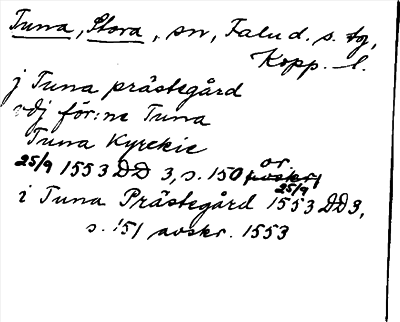 Tuna, Stora, sn, Falu d. s. tg,
Kopp. l.
j Tuna prästegård
vdj för:ne Tuna
Tuna Kyrckie
25/9 1553 DD 3, s. 150 or. avskr!
i Tuna Prästegård 25/9 1553 DD3,
s. 151 avskr. 1553